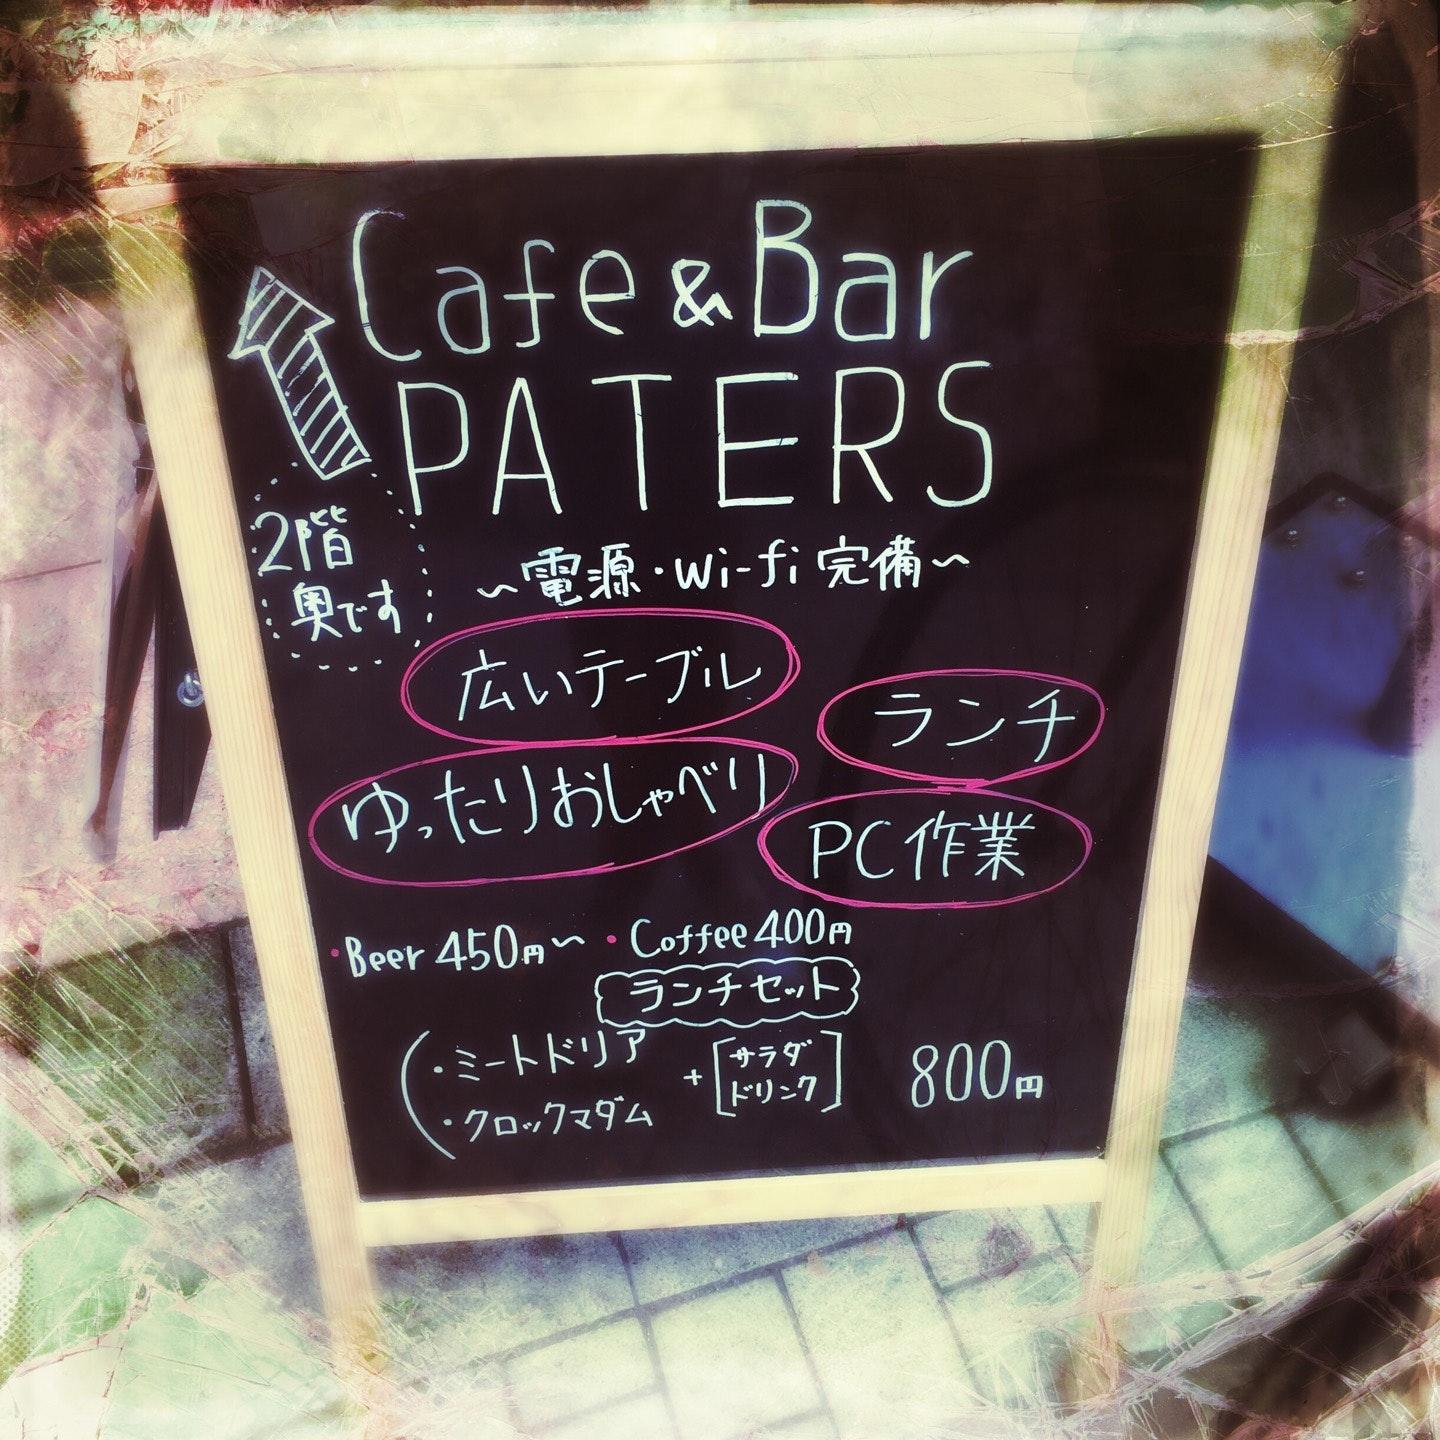 Cafe & Bar
PATERS
2階
奥です
~電源・Wi-fi 完備~
広いテーブル
ランチ
ゆったりおしゃべり
PC作業
・Beer 450円~ ・Coffee 400円
ランチセット
・ミートドリア
・クロックマダム
+ [サラダ
ドリンク]
800円